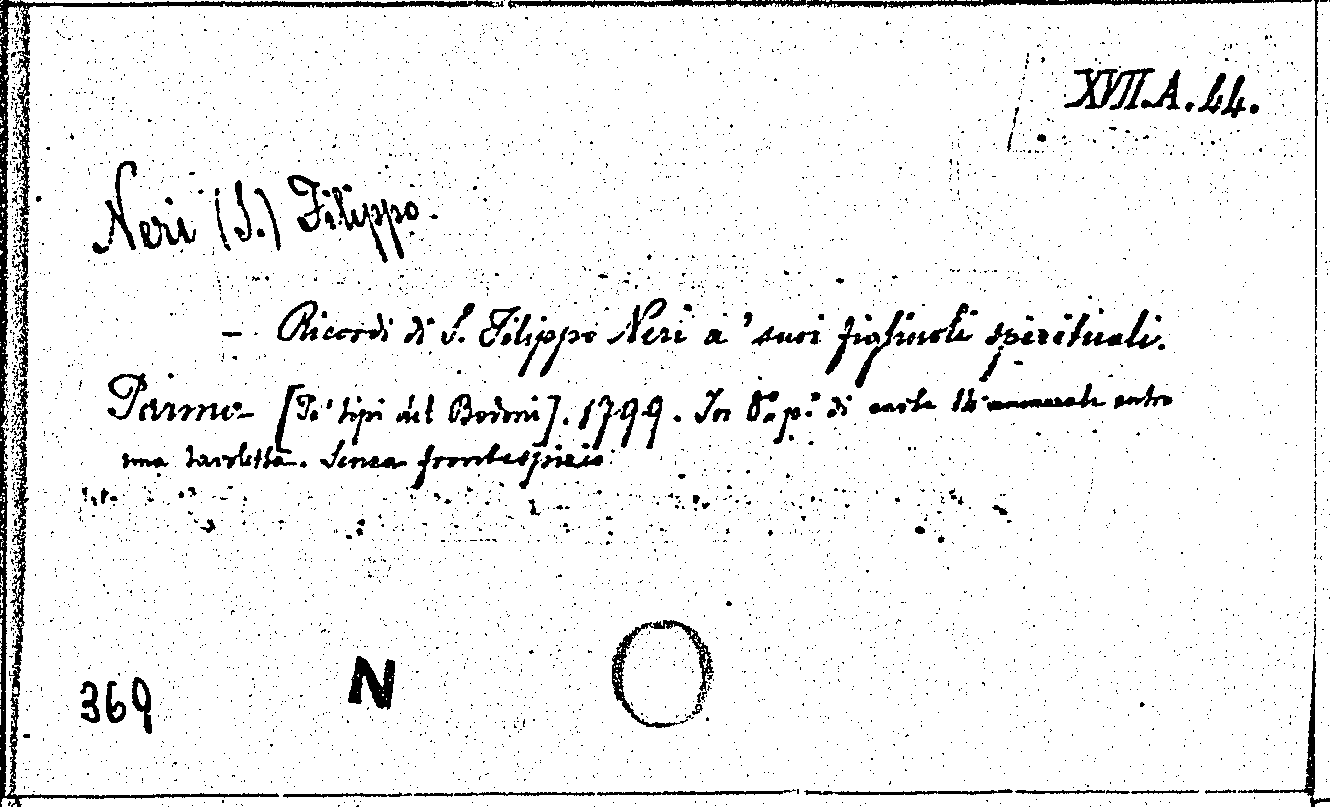 XVII.A.44.
Neri (S.) Filippo.
— Ricordi di S. Filippo Neri a' suoi figliuoli spirituali.
Parma [Pe' tipi del Bodoni]. 1799. In 8.° p.° di carte 14 entro
una tavoletta. Senza frontespizio
369 N